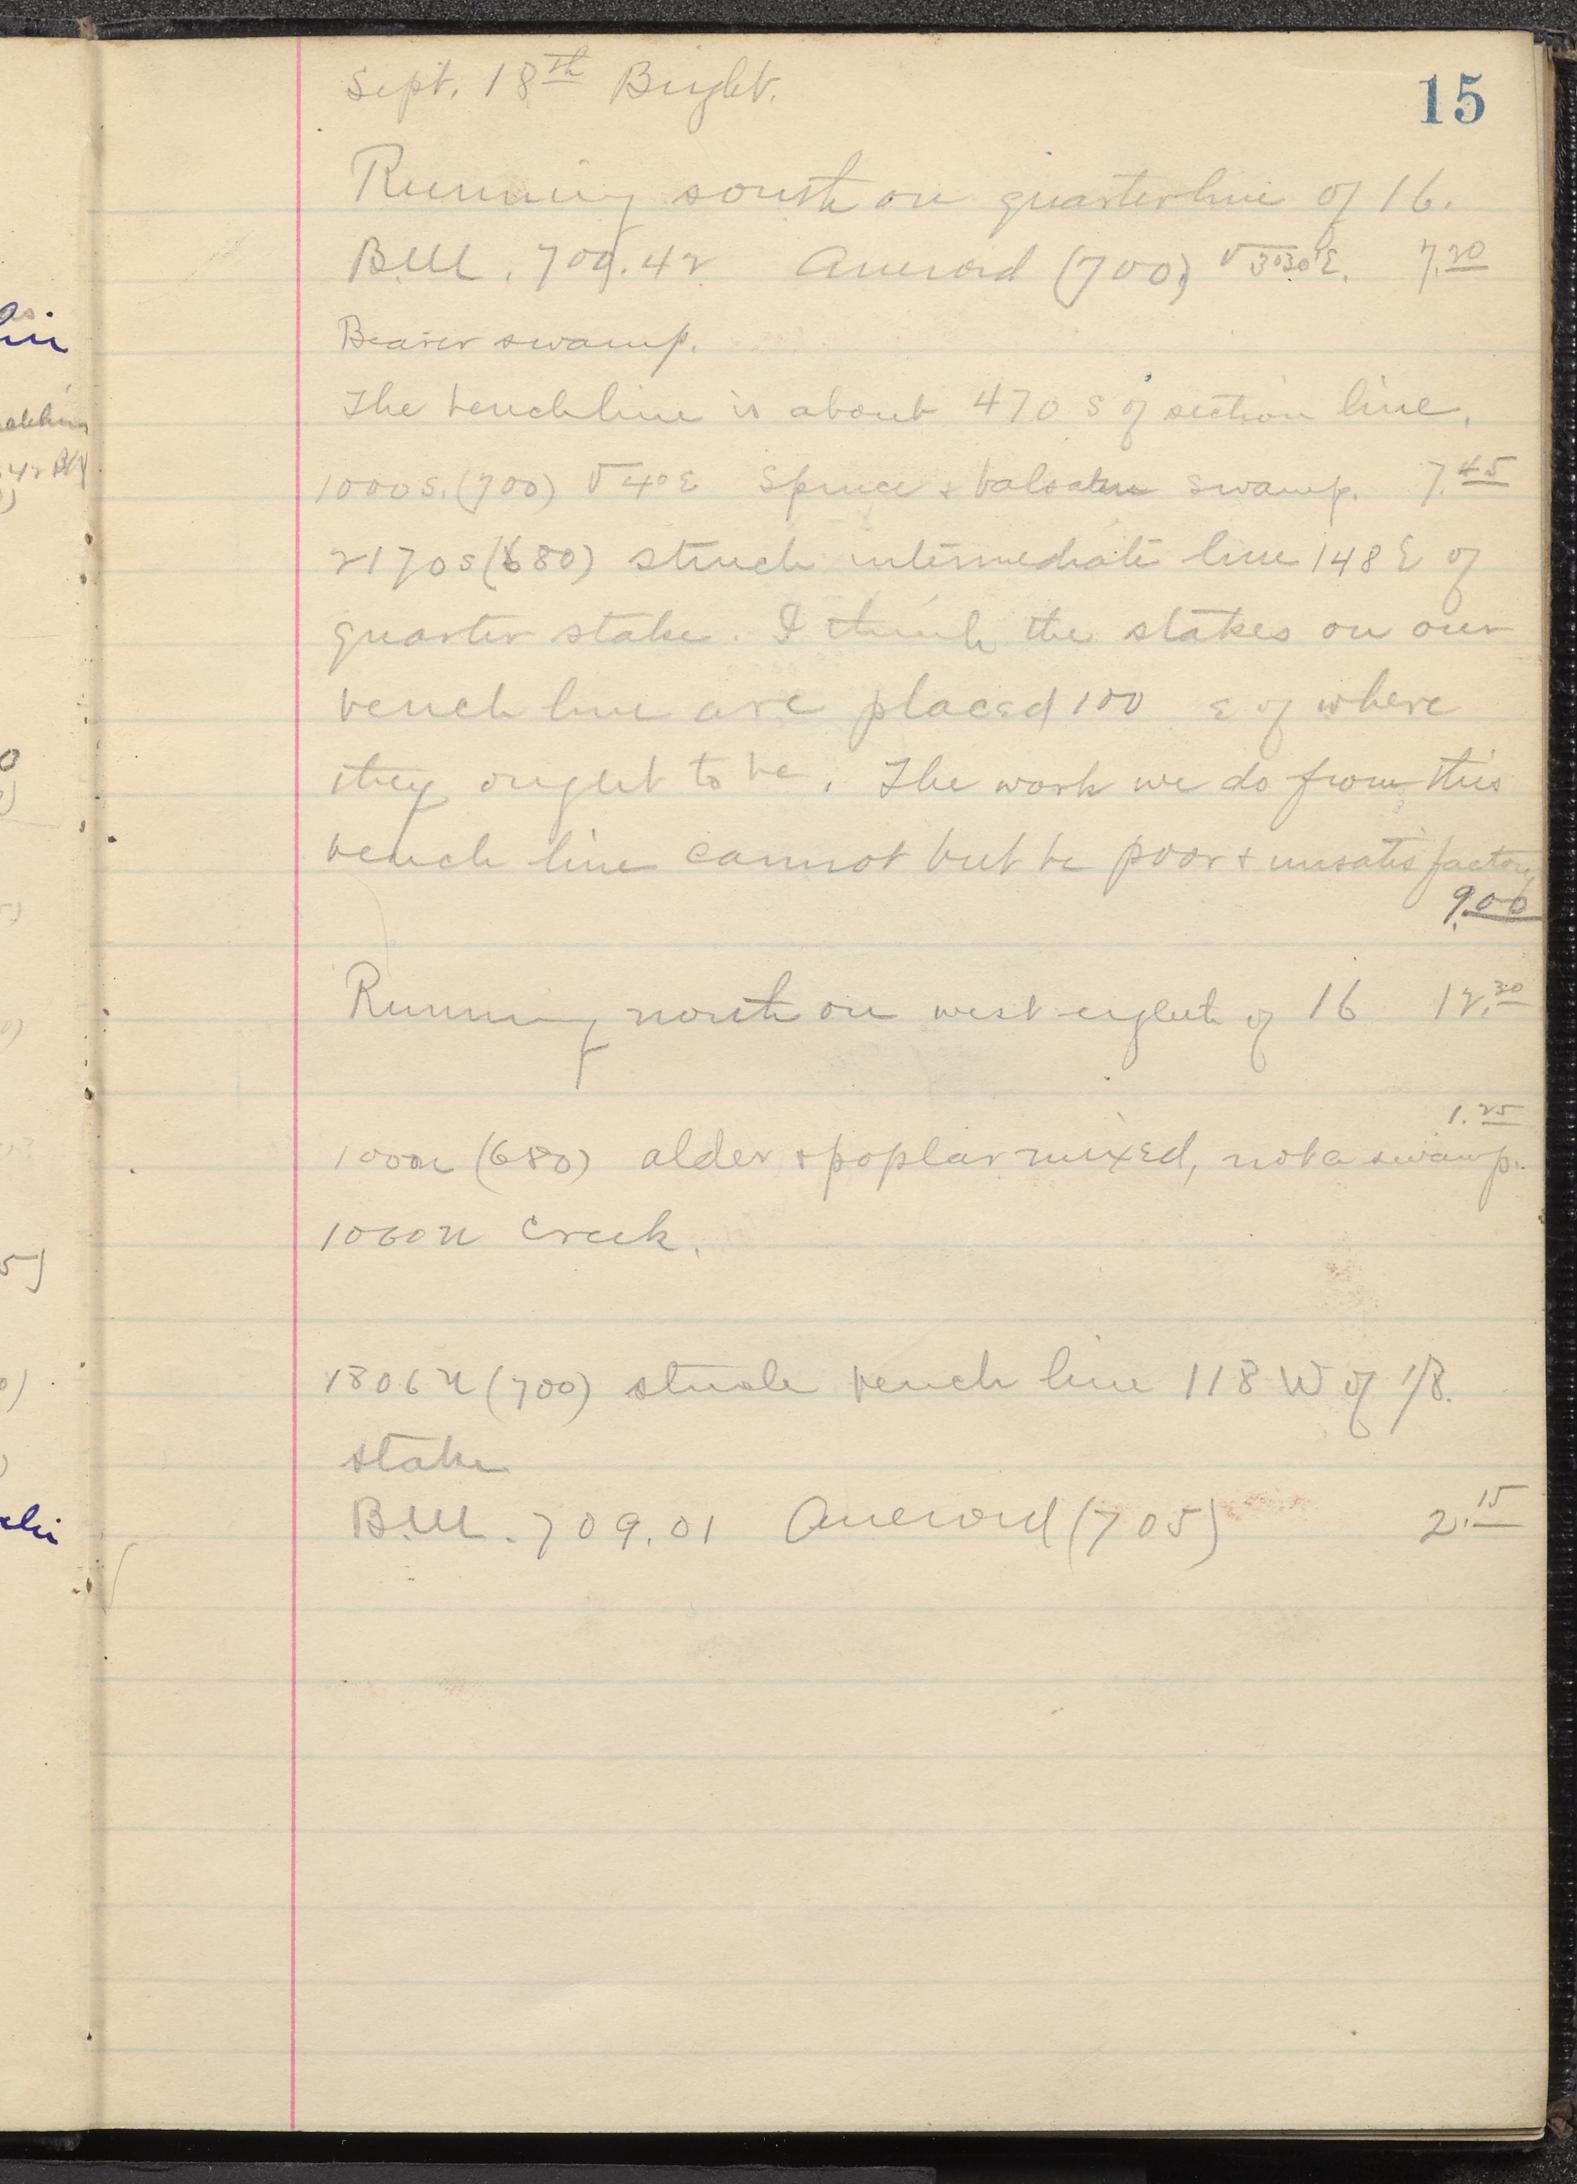 15
Sept. 18th Bright.
Running south on quarterline of 16.
B.M. 709.42 Aneroid (700) V 3°30'E. 7.20
Beaver swamp.
The benchline is about 470 S of section line.
1000 S. (700) V 4° E Spruce & balsam swamp. 7.45
2170 S (680) struck intermediate line 148 E of
quarter stake. I think the stakes on our
bench line are placed 100 E of where
they ought to be. The work we do from this
bench line cannot but be poor & unsatisfactory
9.00
Running north on west eighth of 16 12.30
1.25
1000 N (680) alder & poplar mixed, not a swamp.
1060 N Creek.
1806 N (700) struck bench line 118 W of 1/8
stake
B.M. 709.01 Aneroid (705) 2.15